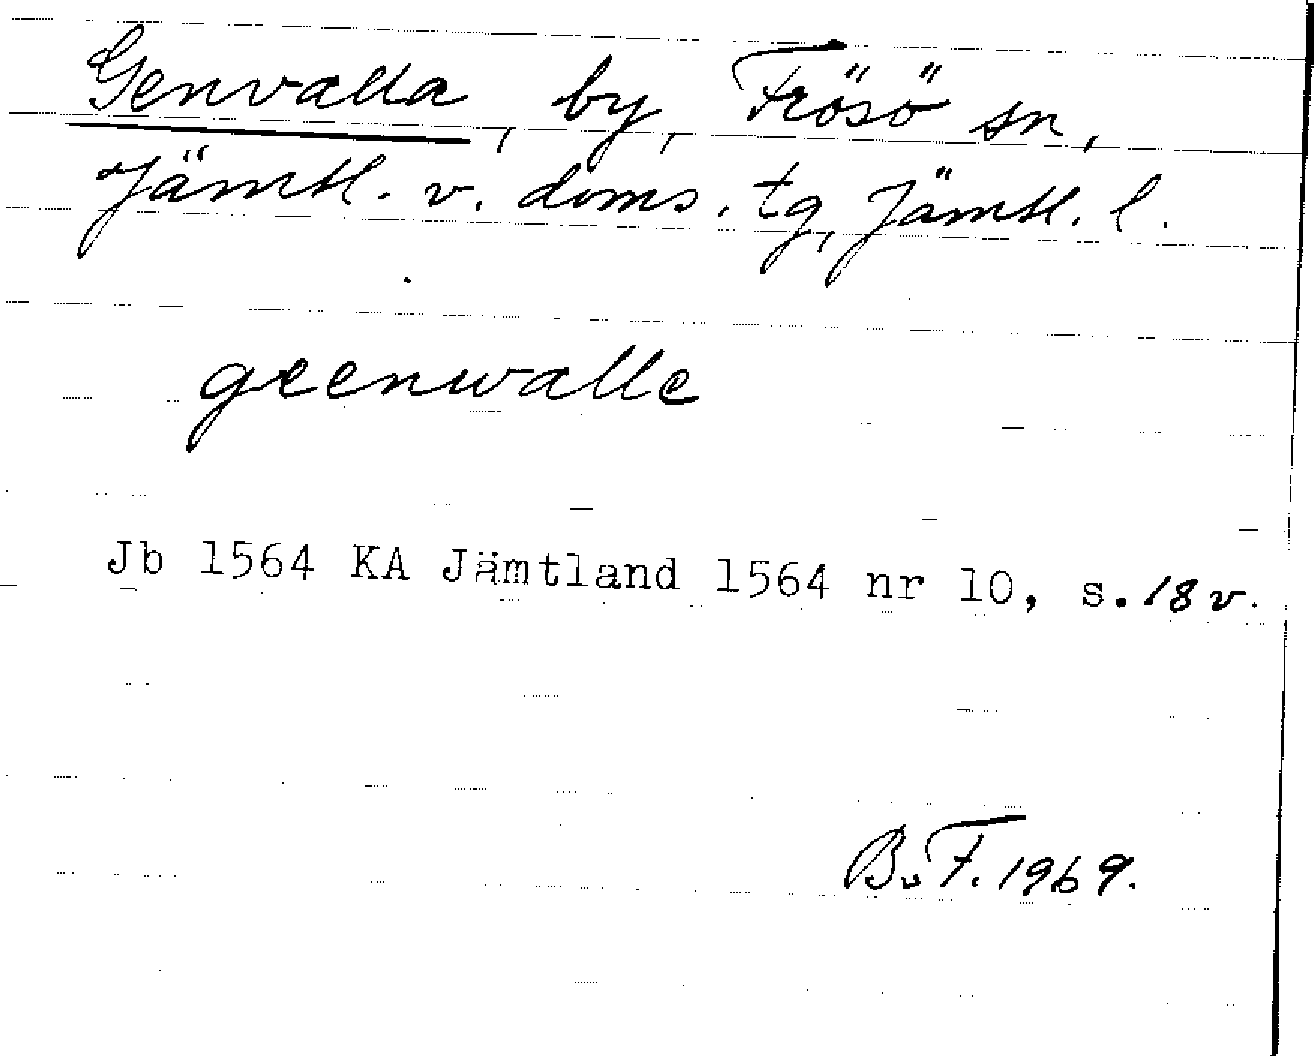 Genvalla, by, Frösö sn,
Jämtl. v. doms. tg, Jämtl. l.
geenwalle
Jb 1564 KA Jämtland 1564 nr 10, s. 18 v.
B.F. 1969.